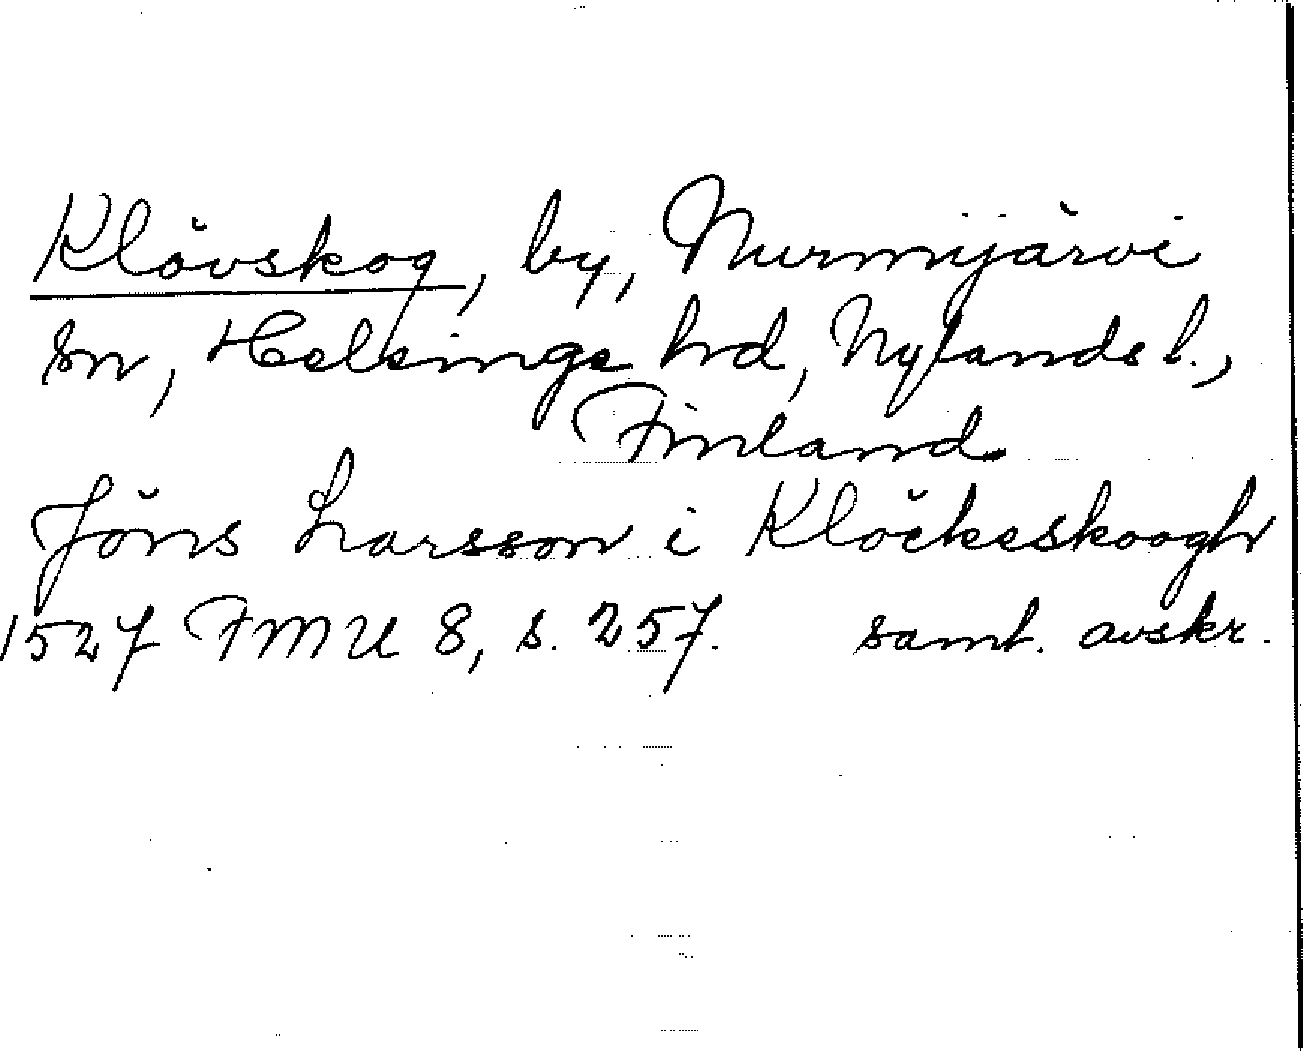 Klövskog, by, Nurmijärvi
sn, Helsinge hrd, Nylands l.,
Finland
Jöns Larsson i Klöckeskoogh
1527 FMU 8, s. 257. samt. avskr.